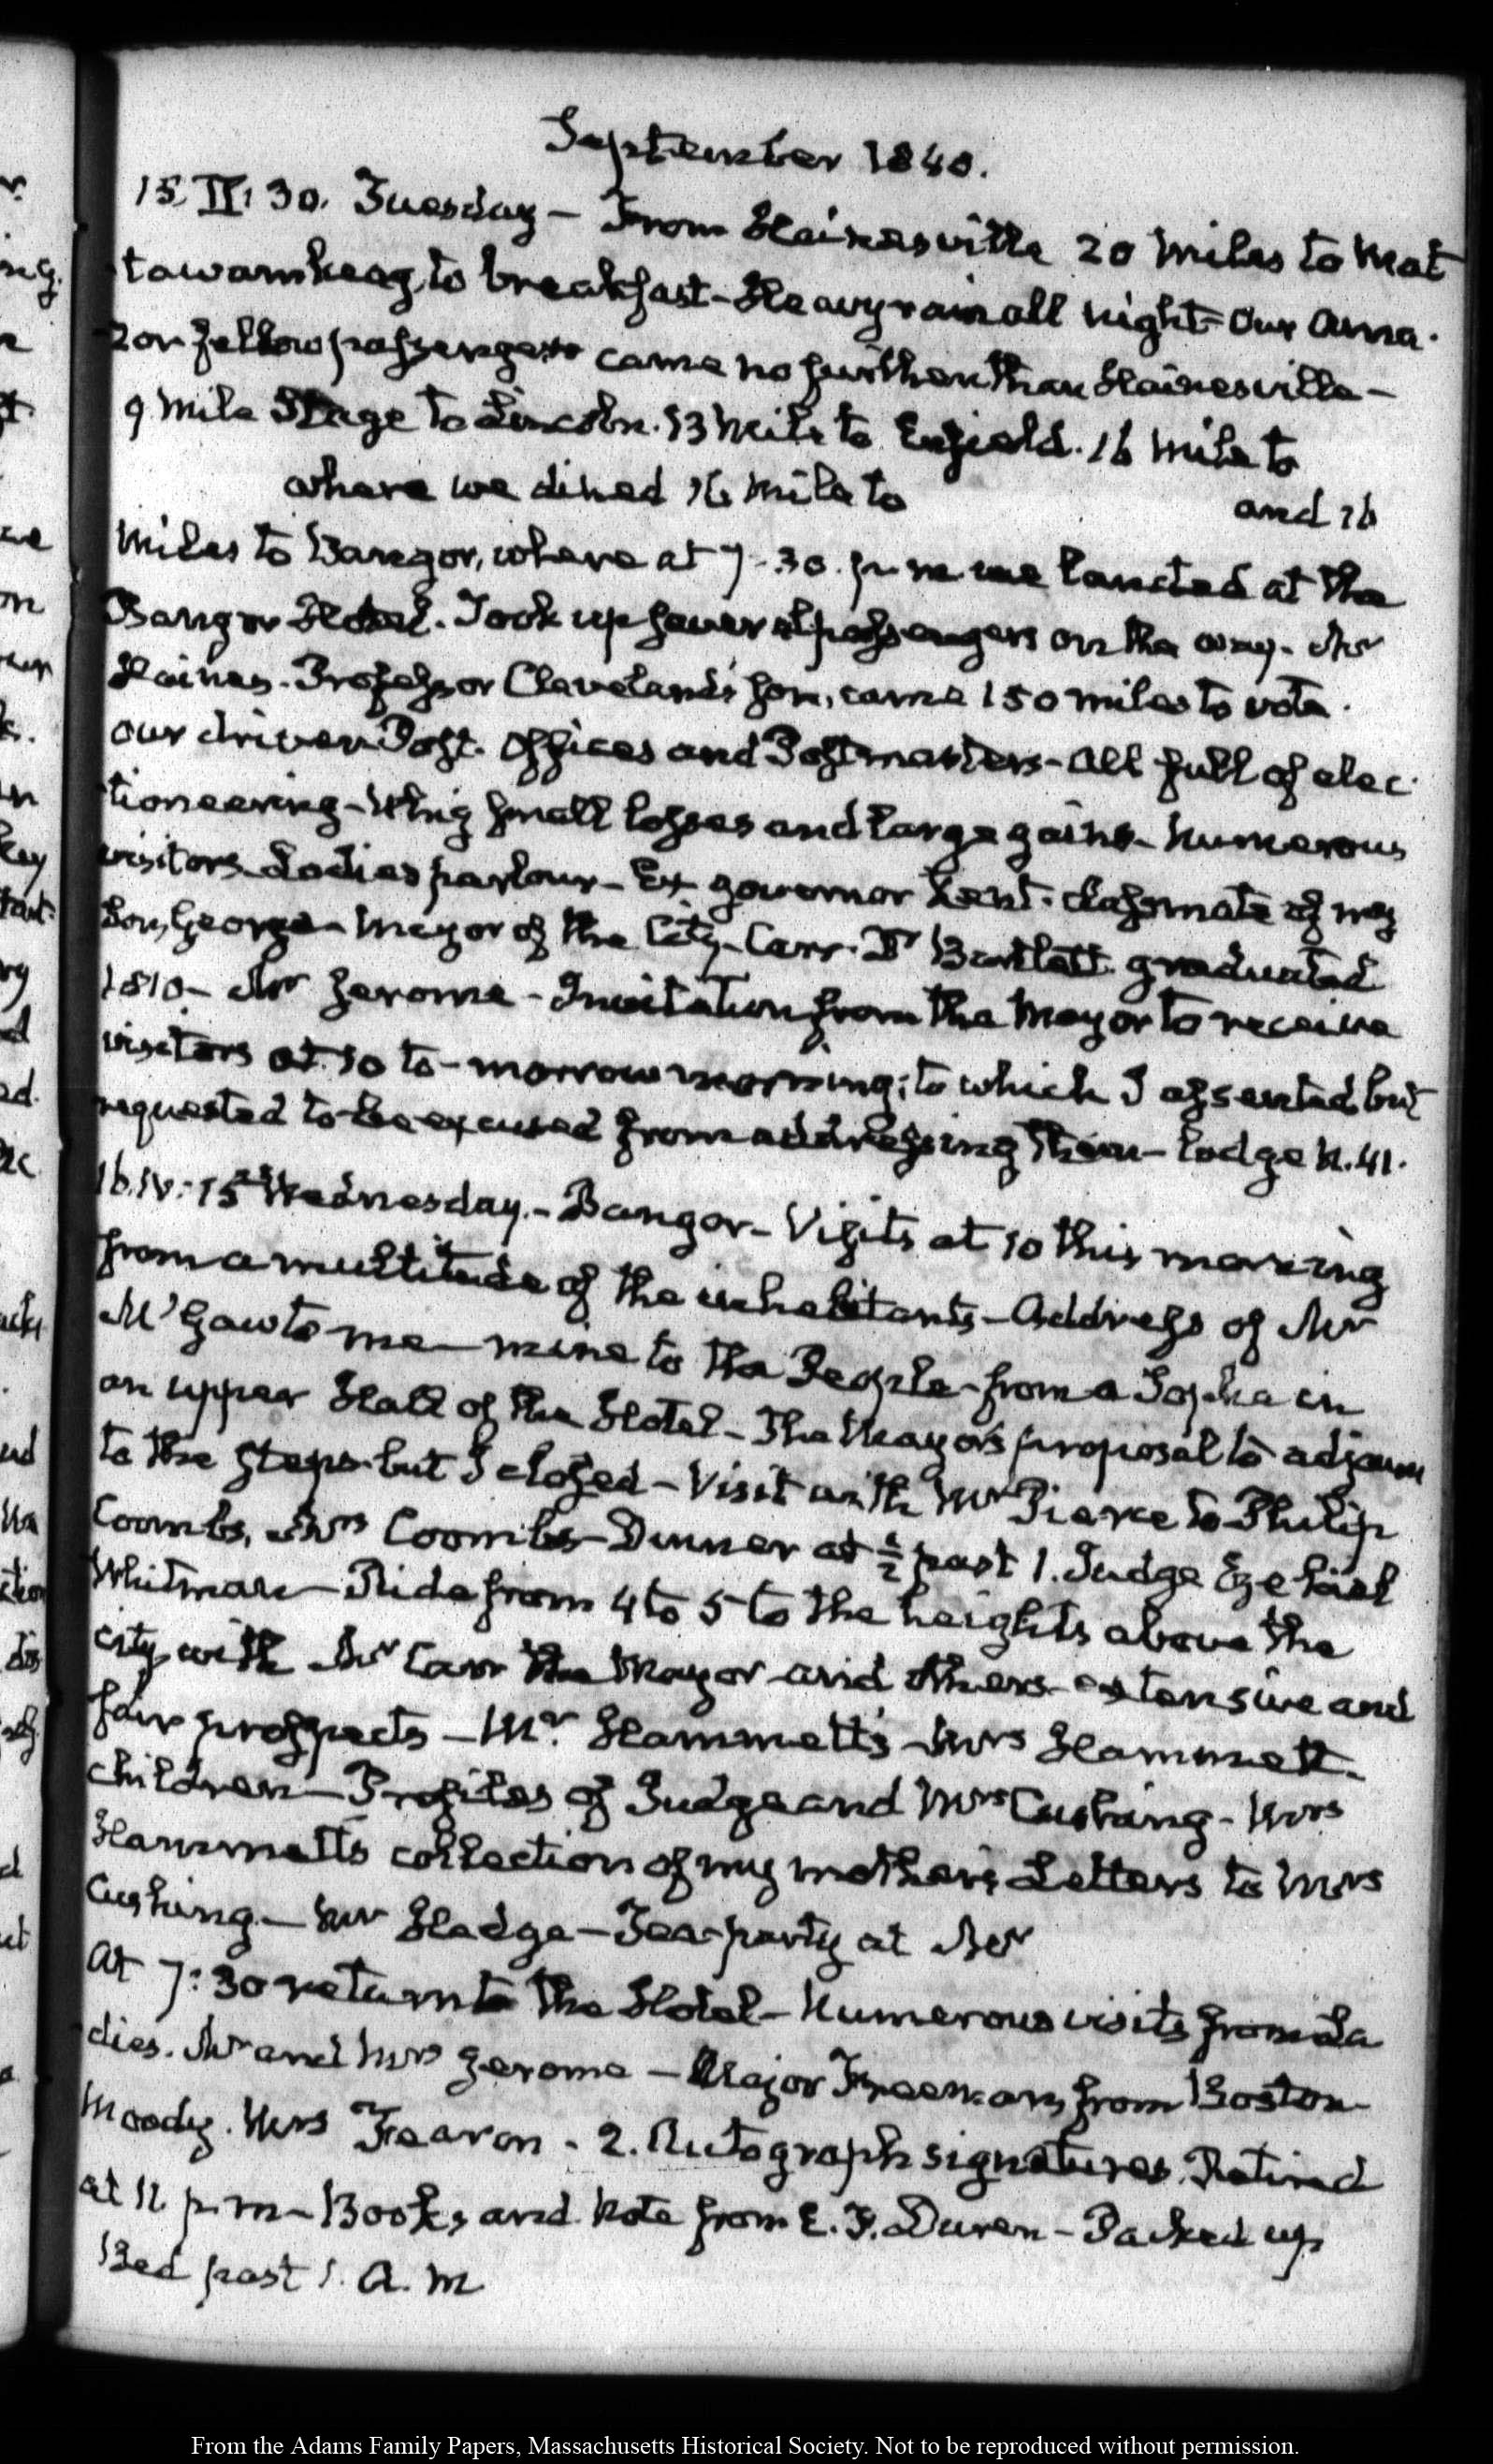 September 1840.
15. IV: 30. Tuesday – From Hainesville 20 miles to Mat
tawamkeag, to breakfast – Heavy rain all night – Our Ama-
zon fellow passenger came no further than Hainesville –
9 mile Stage to Lincoln. 13 mile to Enfield. 16 mile to
where we dined 16 mile to and 16
miles to Bangor, where at 7.30. p.m. we landed at the
Bangor Hotel. Took up several passengers on the way. Mr
Haines. Professor Cleveland's son, came 150 miles to vote.
our driver Post Offices and Postmasters – all full of elec-
tioneering – Whig small losses and large gains – Numerous
visitors Ladies parlour – Ex governor Kent. classmate of my
son, George – Mayor of the City – Carr. Dr Bartlett graduated
1810 – Mr Jerome – Invitation from the Mayor to receive
visitors at 10 to-morrow morning; to which I assented, but
requested to be excused from addressing them – lodge N. 41.
16. IV: 15. Wednesday. – Bangor – Visits at 10 this morning
from a multitude of the inhabitants – Address of Mr
McGaw to me – mine to the People – from a Sopha in
an upper Hall of the Hotel – The Mayor's proposal to adjourn
to the steps. but I closed – Visit with Mr Pierce to Philip
Coombs, Mrs Coombs – Dinner at ½ past 1. Judge Ezekiel
Whitman – Ride from 4 to 5 to the heights above the
city, with Mr Carr the Mayor and others – extensive and
fair prospects – Mr. Hammett's – Mrs Hammett –
children – Profiles of Judge and Mrs Cushing – Mrs
Hammett's collection of my mother's Letters to Mrs
Cushing – Mr Hedge – Tea-party at Mr
At 7:30 return to the Hotel – Numerous visits from La
dies. Mr and Mrs Jerome – Major Freeman, from Boston –
Moody. Mrs Fearon. 2. Autograph signatures. Retired
at 11 p.m – Books and Note from E. F. Duren – Packed up
Bed past 1. A. M
From the Adams Family Papers, Massachusetts Historical Society. Not to be reproduced without permission.